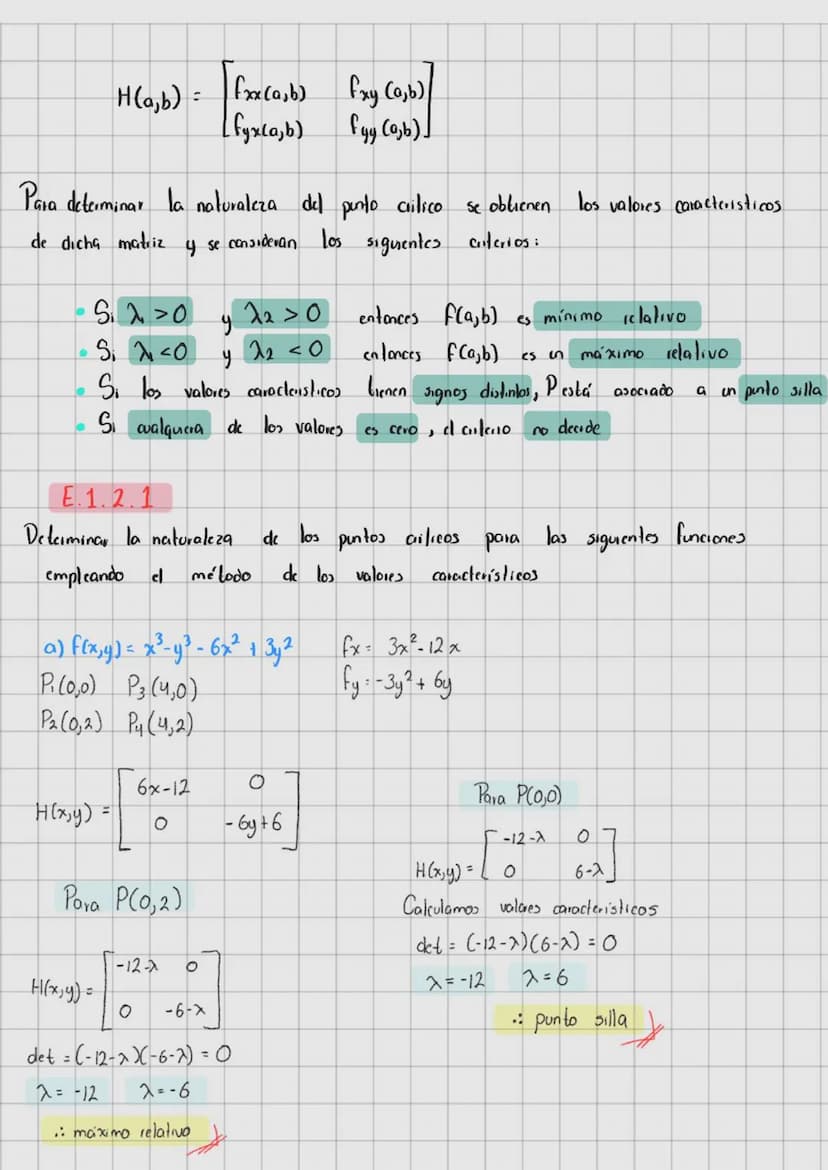 H(a,b) = [fxx(a,b) fxy(a,b)
fyx(a,b) fyy(a,b)]
Para determinar la naturaleza del punto crítico se obtienen los valores característicos
de dicha matriz y se consideran los siguientes criterios:
• Si λ₁ > 0 y λ2 > 0 entonces f(a,b) es mínimo relativo
• Si λ₁ < 0 y λ2 < 0 entonces f(a,b) es un máximo relativo
• Si los valores característicos tienen signos distintos, P está asociado a un punto silla
• Si cualquiera de los valores es cero, el criterio no decide
E.1.2.1
Determinar la naturaleza de los puntos críticos para las siguientes funciones
empleando el método de los valores característicos
a) f(x,y) = x³-y³-6x²+3y²
P₁(0,0) P₃(4,0)
P₂(0,2) P₄(4,2)
fx = 3x²-12x
fy = -3y²+6y
H(x,y) = [6x-12 0
0 -6y+6]
Para P(0,2)
H(x,y) = [-12-λ 0
0 -6-λ]
det = (-12-λ)(-6-λ) = 0
λ = -12 λ = -6
∴ máximo relativo
Para P(0,0)
H(x,y) = [-12-λ 0
0 6-λ]
Calculamos valores característicos
det = (-12-λ)(6-λ) = 0
λ = -12 λ = 6
∴ punto silla